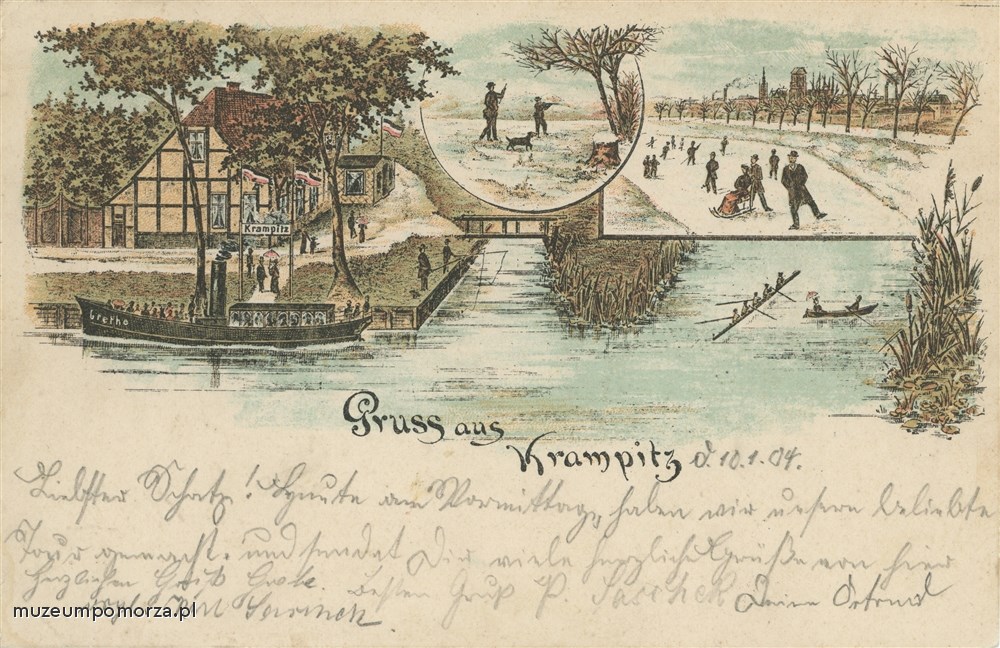 Krampitz
Grethe
Gruss aus
Krampitz d. 10.1.04.
Liebster Schatz! Heute am Vormittag haben wir unsern beliebte
Tour gemacht und sendet Dir viele herzliche Grüße von hier
Herzlichen Gruß Besten Gruß P. Deine
muzeumpomorza.pl